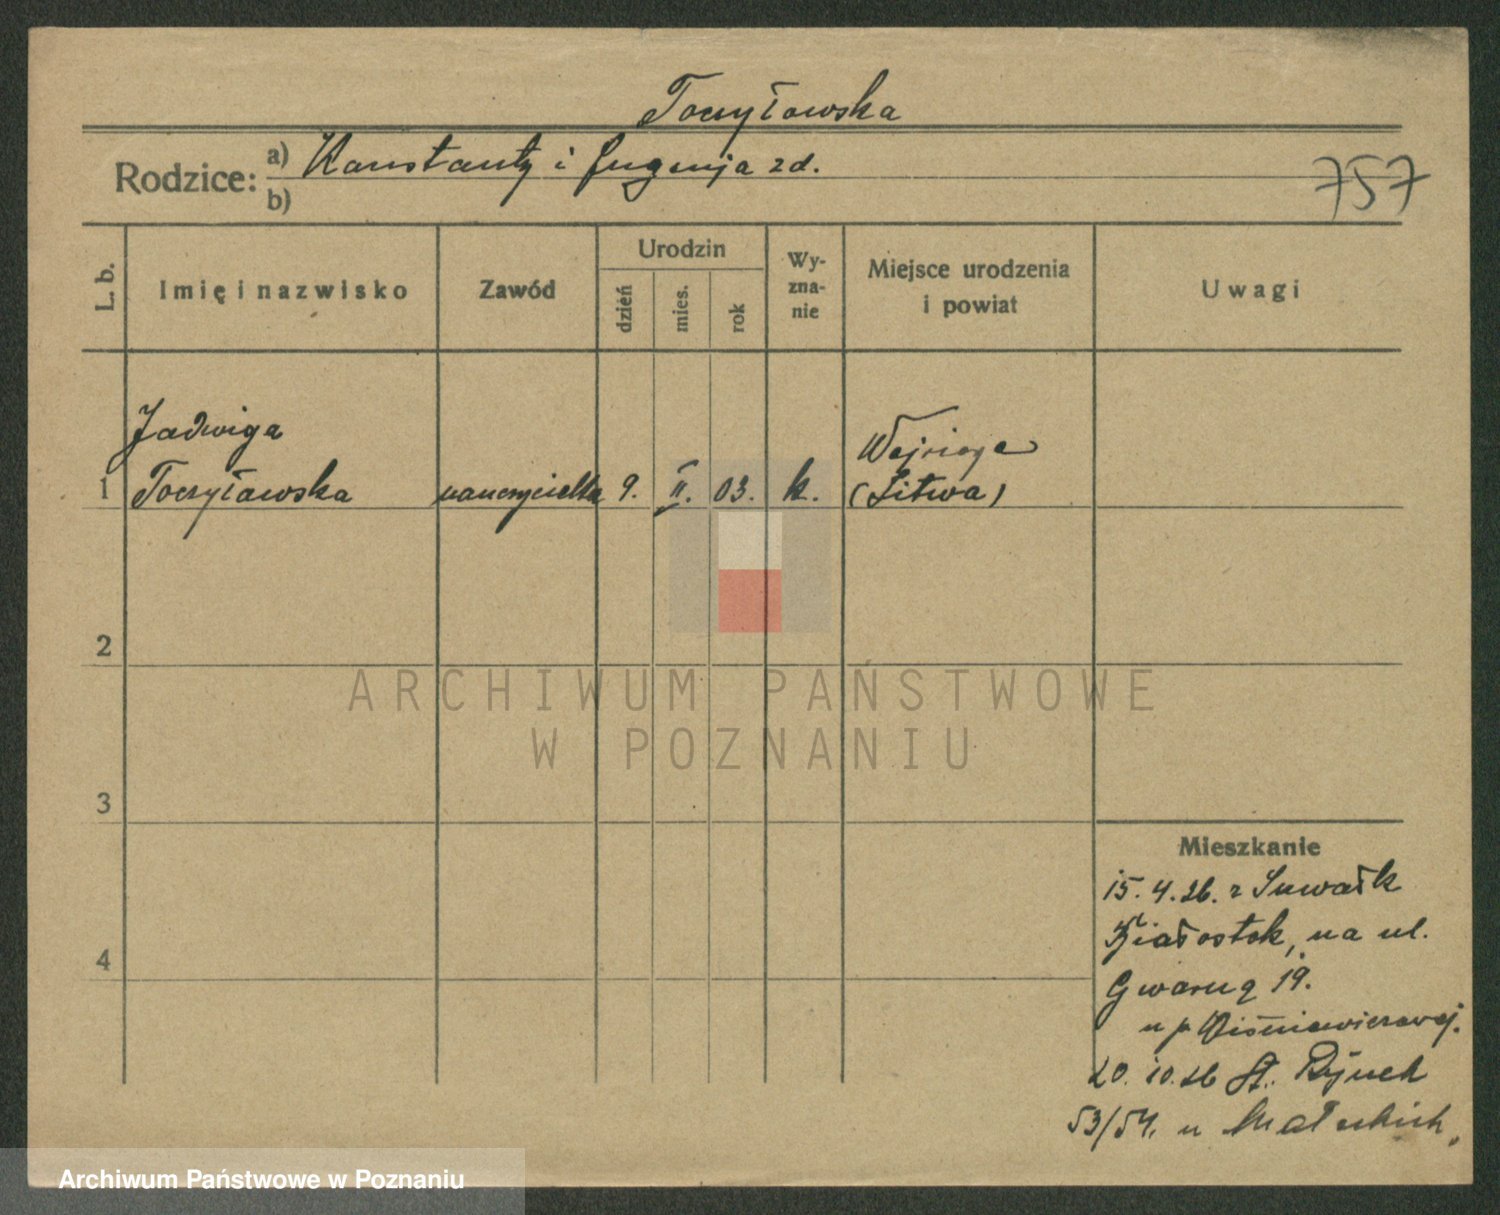 Toczyłowska
Rodzice: a) Konstanty i Eugenja zd.
b)
757
L. b.
Imię i nazwisko
Zawód
Urodzin
dzień
mies.
rok
Wy-
zna-
nie
Miejsce urodzenia
i powiat
Uwagi
Jadwiga
1 Toczyłowska nauczycielka 9. II. 03. k.
(Litwa)
2
3
4
Mieszkanie
15.4.26. z Suwałk
Białostok, na ul.
Gwarną 19.
u p. Wiśniewiczowej.
20.10.26 St. Rynek
53/54. u Małeckich,
ARCHIWUM PAŃSTWOWE
W POZNANIU
Archiwum Państwowe w Poznaniu